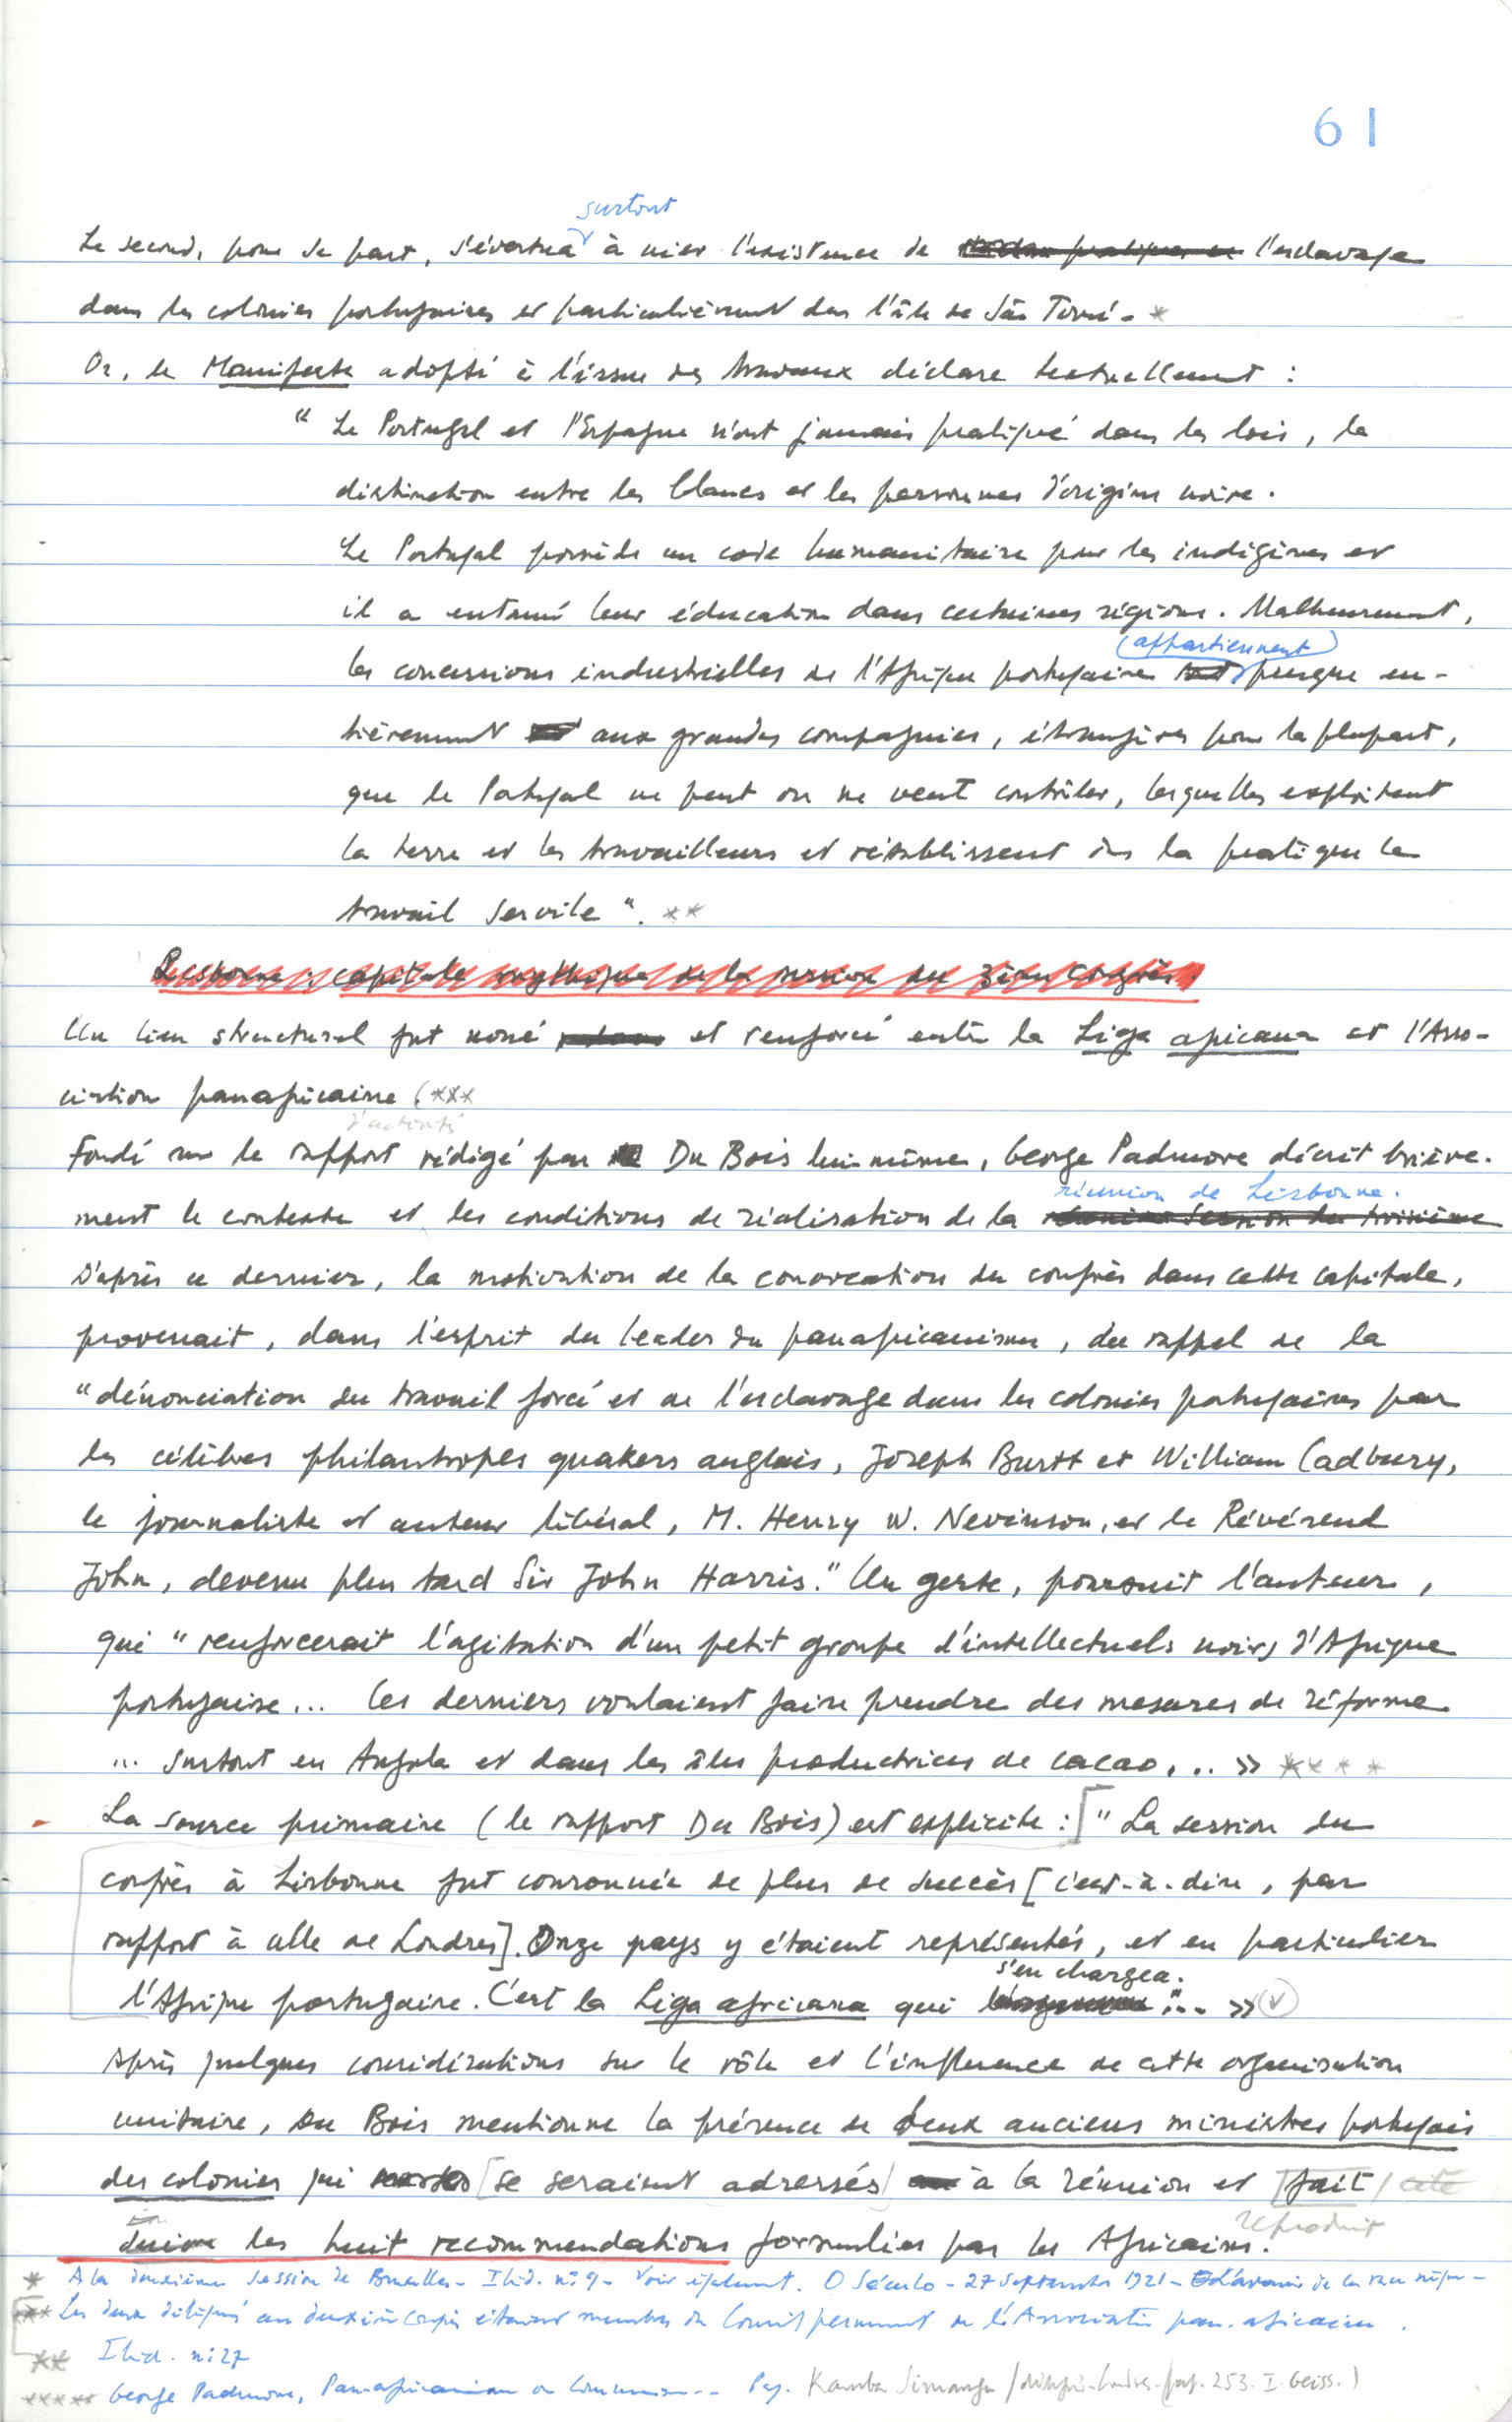 61
surtout
Le second, pour sa part, s'évertua à nier l'existence de l'esclavage
dans les colonies portugaises et particulièrement dans l'île de São Tomé. *
Or, le Manifeste adopté à l'issue des travaux déclare textuellement :
" Le Portugal et l'Espagne n'ont jamais pratiqué dans les lois, la
distinction entre les blancs et les personnes d'origine noire.
Le Portugal possède un code humanitaire pour les indigènes et
il a entamé leur éducation dans certaines régions. Malheureusement,
(appartiennent)
les concessions industrielles de l'Afrique portugaise presque en-
tièrement aux grandes compagnies, étrangères pour la plupart,
que le Portugal ne peut ou ne veut contrôler, lesquelles exploitent
la terre et les travailleurs et rétablissent dans la pratique le
travail servile ". **
Lisbonne : capitale mythique de la session du 3ème Congrès.
Un lien structurel fut noué et renforcé entre la Liga africana et l'Asso-
ciation panafricaine (***
d'activité
Fondé sur le rapport rédigé par Du Bois lui-même, George Padmore décrit briève-
réunion de Lisbonne.
ment le contexte et les conditions de réalisation de la session du troisième
D'après ce dernier, la motivation de la convocation du congrès dans cette capitale,
provenait, dans l'esprit du leader du panafricanisme, du rappel de la
"dénonciation du travail forcé et de l'esclavage dans les colonies portugaises par
les célèbres philantropes quakers anglais, Joseph Burtt et William Cadbury,
le journaliste et auteur libéral, M. Henry W. Nevinson, et le Révérend
John, devenu plus tard Sir John Harris." Un geste, poursuit l'auteur,
qui " renforcerait l'agitation d'un petit groupe d'intellectuels noirs d'Afrique
portugaise... Ces derniers voulaient faire prendre des mesures de réforme
... surtout en Angola et dans les îles productrices de cacao... » ****
La source primaire (le rapport Du Bois) est explicite : [" La session du
congrès à Lisbonne fut couronnée de plus de succès [c'est-à-dire, par
rapport à celle de Londres]. Onze pays y étaient représentés, et en particulier
s'en chargea.
l'Afrique portugaise. C'est la Liga africana qui "... » (v)
Après quelques considérations sur le rôle et l'influence de cette organisation
unitaire, Du Bois mentionne la présence de deux anciens ministres portugais
des colonies qui [se seraient adressés] à la réunion et [fait / cité
reproduit
suivre les huit recommendations formulées par les Africains.
* A la deuxième session de Bruxelles - Ibid. n: 9 - Voir également. O Século - 27 Septembre 1921 - de la race nègre -
*** Les deux délégués au deuxième congrès étaient membres du Conseil permanent de l'Association pan-africaine.
** Ibid. n: 27
***** George Padmore, Panafricanisme ou Communisme... Pag. Kamba Simango / délégué - Londres - (pag. 253. I. Geiss.)